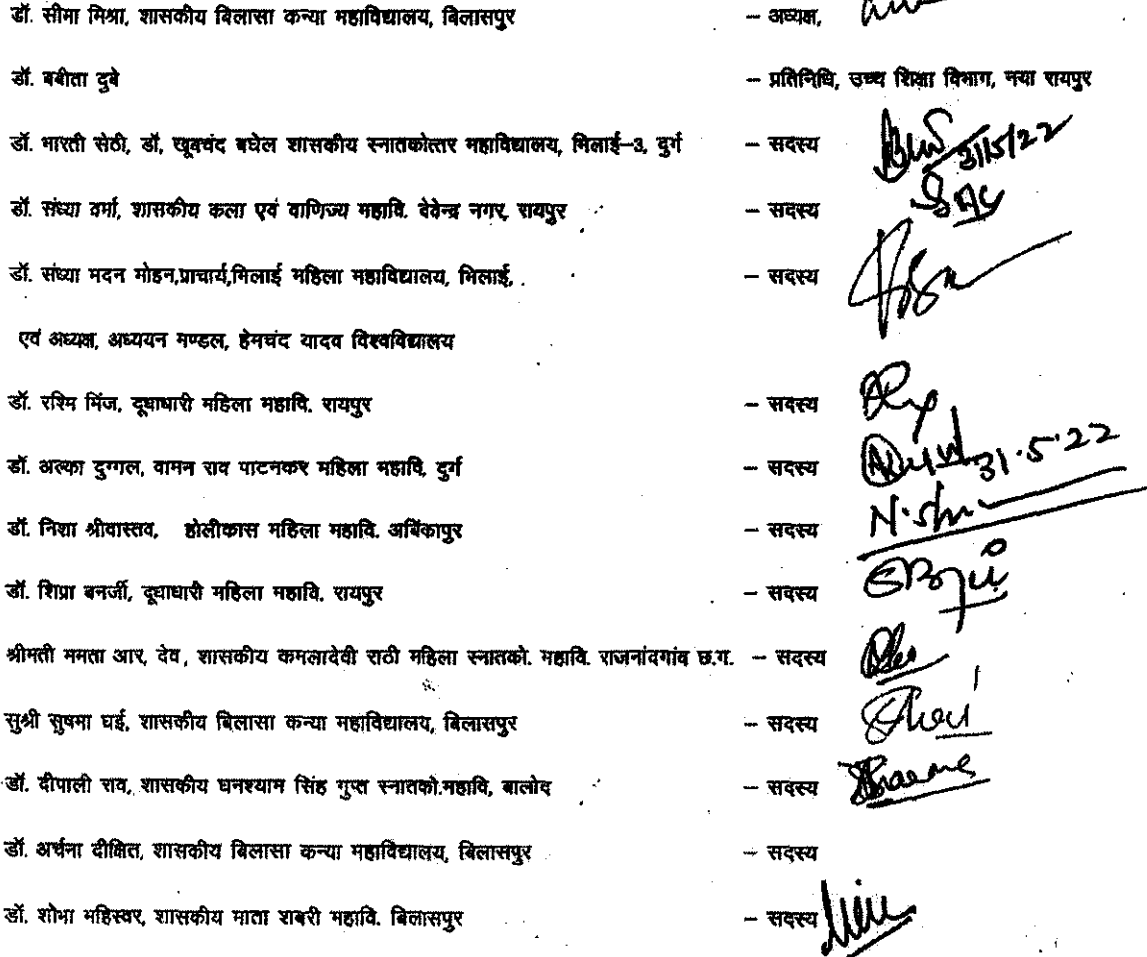 डॉ. सीमा मिश्रा, शासकीय बिलासा कन्या महाविद्यालय, बिलासपुर – अध्यक्ष,
डॉ. बबीता दुबे – प्रतिनिधि, उच्च शिक्षा विभाग, नया रायपुर
डॉ. भारती सेठी, डॉ, खूबचंद बघेल शासकीय स्नातकोत्तर महाविद्यालय, भिलाई–3, दुर्ग – सदस्य 31/5/22
डॉ. संध्या वर्मा, शासकीय कला एवं वाणिज्य महावि. देवेन्द्र नगर, रायपुर – सदस्य
डॉ. संध्या मदन मोहन,प्राचार्य,भिलाई महिला महाविद्यालय, भिलाई, – सदस्य
एवं अध्यक्ष, अध्ययन मण्डल, हेमचंद यादव विश्वविद्यालय
डॉ. रश्मि मिंज, दूधाधारी महिला महावि. रायपुर – सदस्य
डॉ. अल्का दुग्गल, वामन राव पाटनकर महिला महावि. दुर्ग – सदस्य 31.5.22
डॉ. निशा श्रीवास्तव, होलीकास महिला महावि. अबिंकापुर – सदस्य
डॉ. शिप्रा बनर्जी, दूधाधारी महिला महावि. रायपुर – सदस्य
श्रीमती ममता आर, देव, शासकीय कमलादेवी राठी महिला स्नातको. महावि. राजनांदगांव छ.ग. – सदस्य
सुश्री सुषमा घई, शासकीय बिलासा कन्या महाविद्यालय, बिलासपुर – सदस्य
डॉ. दीपाली राव, शासकीय घनश्याम सिंह गुप्त स्नातको.महावि, बालोद – सदस्य
डॉ. अर्चना दीक्षित, शासकीय बिलासा कन्या महाविद्यालय, बिलासपुर – सदस्य
डॉ. शोभा महिस्वर, शासकीय माता शबरी महावि. बिलासपुर – सदस्य